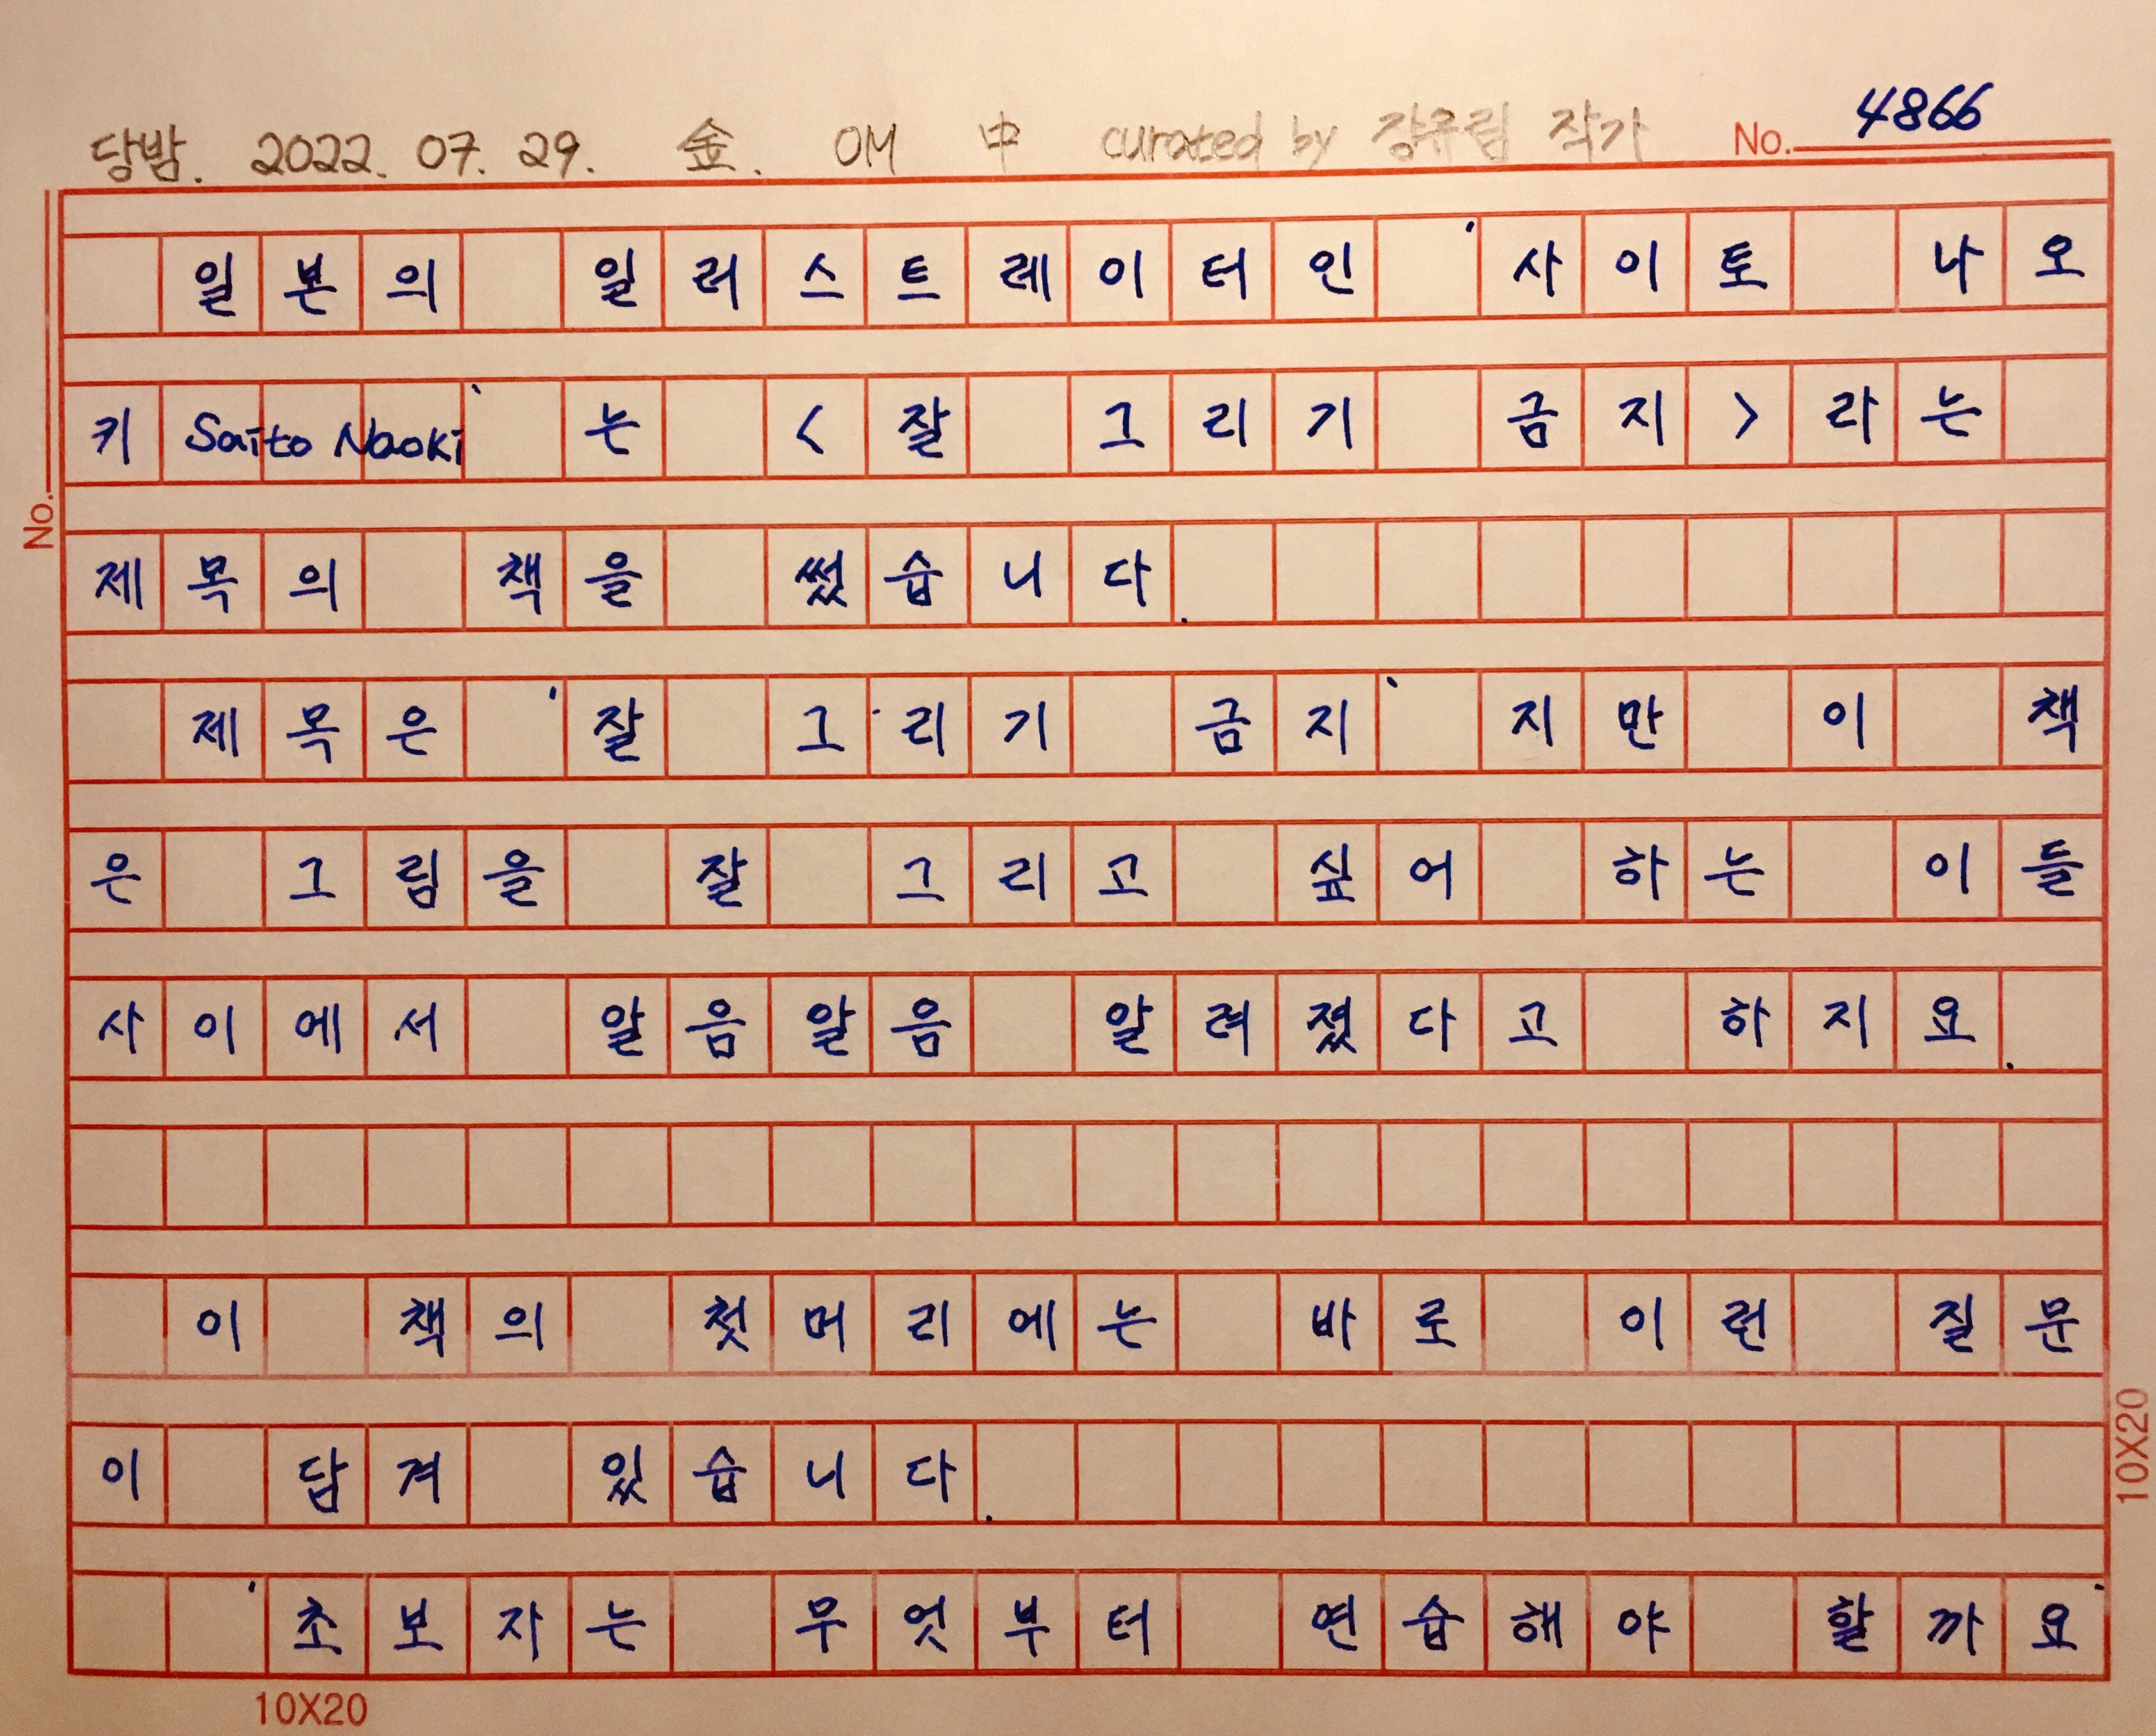 당밤. 2022. 07. 29. 金. OM 中 curated by 장규림 작가 No. 4866
일본의 일러스트레이터인 '사이토 나오
키 Saito Naoki' 는 <잘 그리기 금지>라는
제목의 책을 썼습니다.
제목은 '잘 그리기 금지' 지만 이 책
은 그림을 잘 그리고 싶어 하는 이들
사이에서 알음알음 알려졌다고 하지요.
이 책의 첫머리에는 바로 이런 질문
이 담겨 있습니다.
'초보자는 무엇부터 연습해야 할까요'
No.
10X20
10X20